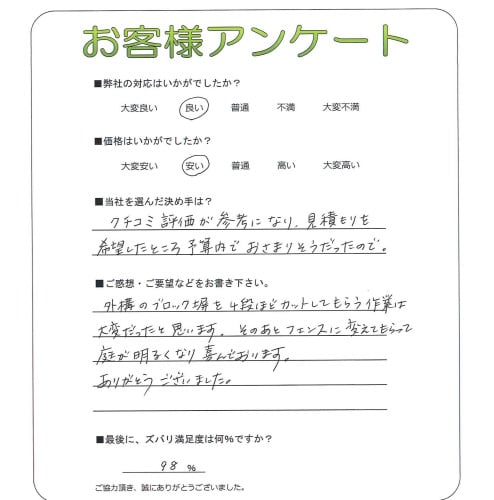 お客様アンケート
■弊社の対応はいかがでしたか？
大変良い 良い 普通 不満 大変不満
■価格はいかがでしたか？
大変安い 安い 普通 高い 大変高い
■当社を選んだ決め手は？
クチコミ評価が参考になり、見積もりを
希望したところ予算内でおさまりそうだったので。
■ご感想・ご要望などをお書き下さい。
外構のブロック塀を4段ほどカットしてもらう作業は
大変だったと思います。そのあとフェンスに変えてもらって
庭が明るくなり喜んでおります。
ありがとうございました。
■最後に、ズバリ満足度は何％ですか？
98 ％
ご協力頂き、誠にありがとうございました。